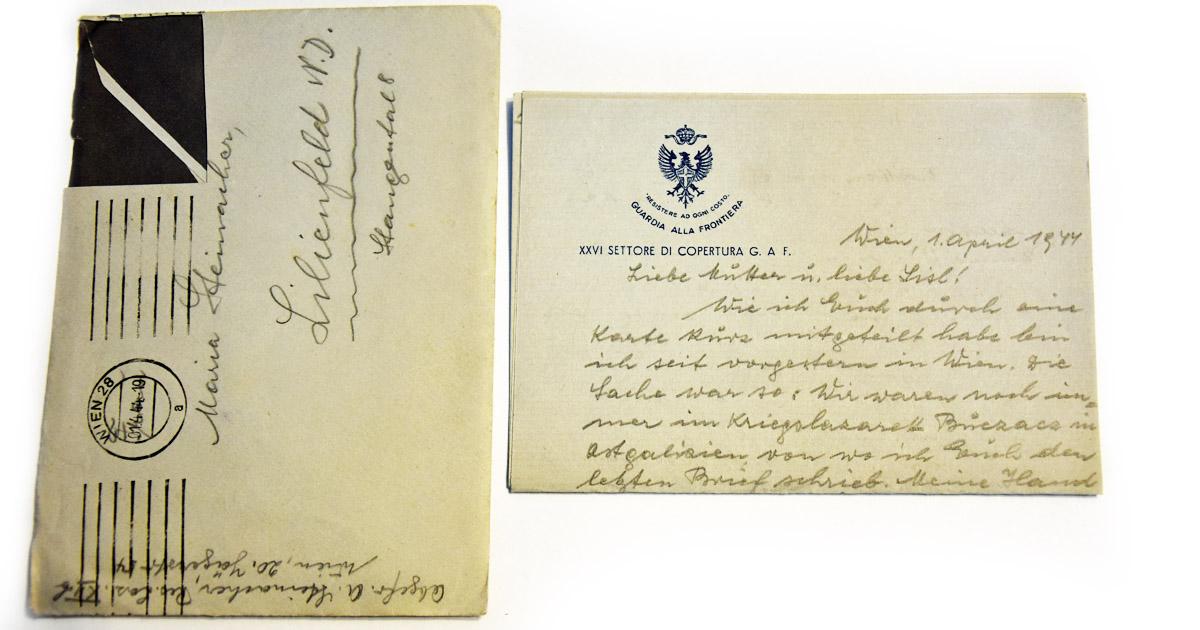 Maria Steinacher,
Lilienfeld N.D.
Stangental 8
WIEN 28
a
A. Steinacher, Res. Laz.
Wien, 20. Jägerstr.
"RESISTERE AD OGNI COSTO"
GUARDIA ALLA FRONTIERA
XXVI SETTORE DI COPERTURA G. A F.
Wien, 1. April 1944
Liebe Mutter u. liebe Lisl!
Wie ich Euch durch eine
Karte kurz mitgeteilt habe bin
ich seit vorgestern in Wien. Die
Sache war so: Wir waren noch im=
mer im Kriegslazarett Buczacz in
Ostgalizien, von wo ich Euch den
letzten Brief schrieb. Meine Hand